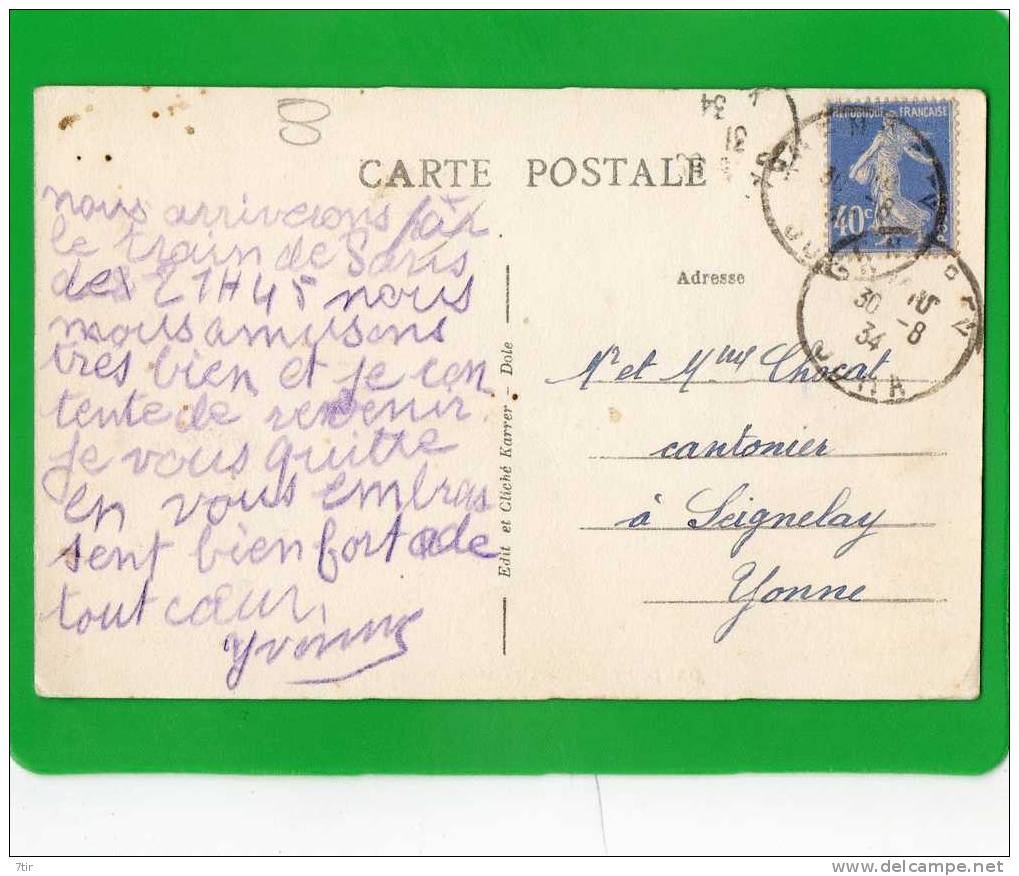 CARTE POSTALE
nous arriverons par
le train de Paris
des 21H45 nous
nous amusons
tres bien et je con
tente de revenir
je vous quitte
en vous embras
sent bien fort de
tout cœur,
Yvonne
Edit et Cliché Karrer - Dole
REPUBLIQUE FRANCAISE
40c
31
34
30 -8
34
JURA
Adresse
Mr et Mme Chocat
cantonier
à Seignelay
Yonne
7tir
www.delcampe.net